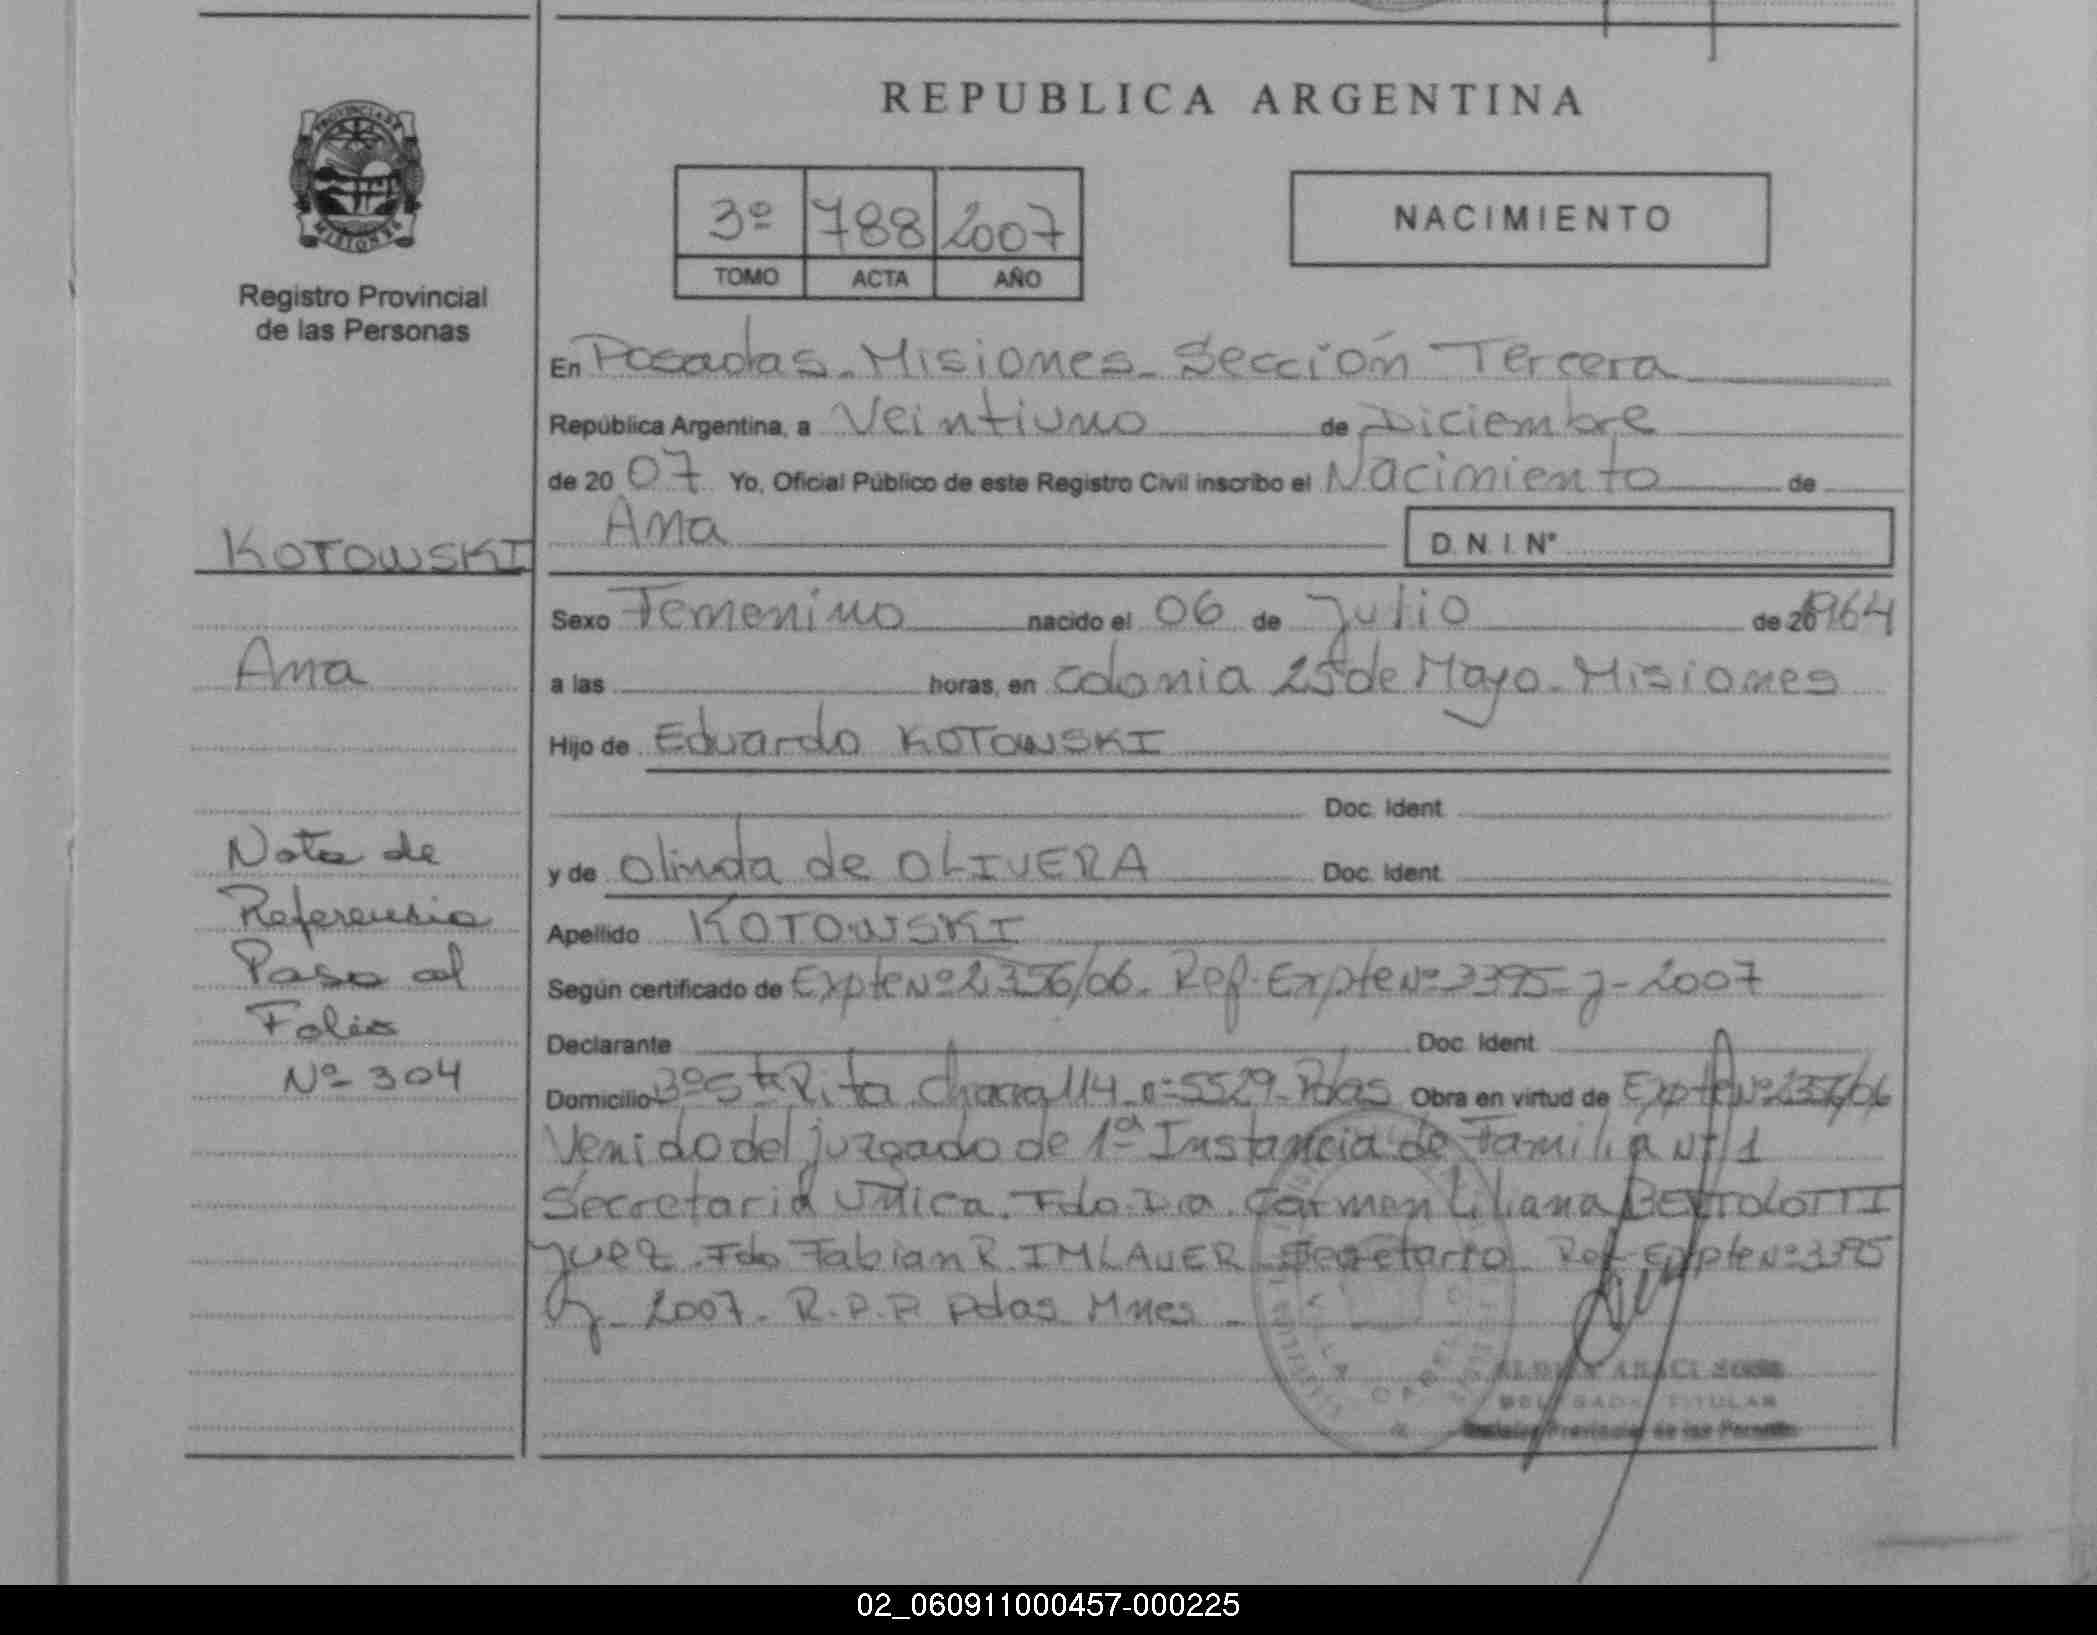 REPUBLICA ARGENTINA
PROVINCIA DE
MISIONES
Registro Provincial
de las Personas
3º 788 2007
TOMO ACTA AÑO
NACIMIENTO
En Posadas - Misiones - Sección Tercera
República Argentina, a Veintiuno de Diciembre
de 20 07 Yo, Oficial Público de este Registro Civil inscribo el Nacimiento de
Ana D. N. I. N°
Sexo Femenino nacido el 06 de Julio de 1964
a las horas, en Colonia 25 de Mayo - Misiones
Hijo de Eduardo KOTOWSKI
Doc. Ident.
y de Olinda de OLIVERA Doc. Ident.
Apellido KOTOWSKI
Según certificado de Expte Nº 2356/06. Ref. Expte Nº 3395-J-2007
Declarante Doc. Ident.
Domicilio Bº Sta Rita Chacra 114 - nº 5529 - Pdas Obra en virtud de Expte Nº 2356/06
Venido del juzgado de 1ª Instancia de Familia Nº 1
Secretaria Unica. Fdo. Dra. Carmen Liliana BERTOLOTTI
Juez. Fdo Fabian R. IMLAUER Secretario - Ref. Expte Nº 3395
J- 2007 - R.P.P. Pdas Mnes -
DELEGADA TITULAR
Provincial de las Personas
KOTOWSKI
Ana
Nota de
Referencia
Paso al
Folio
Nº 304
02_060911000457-000225